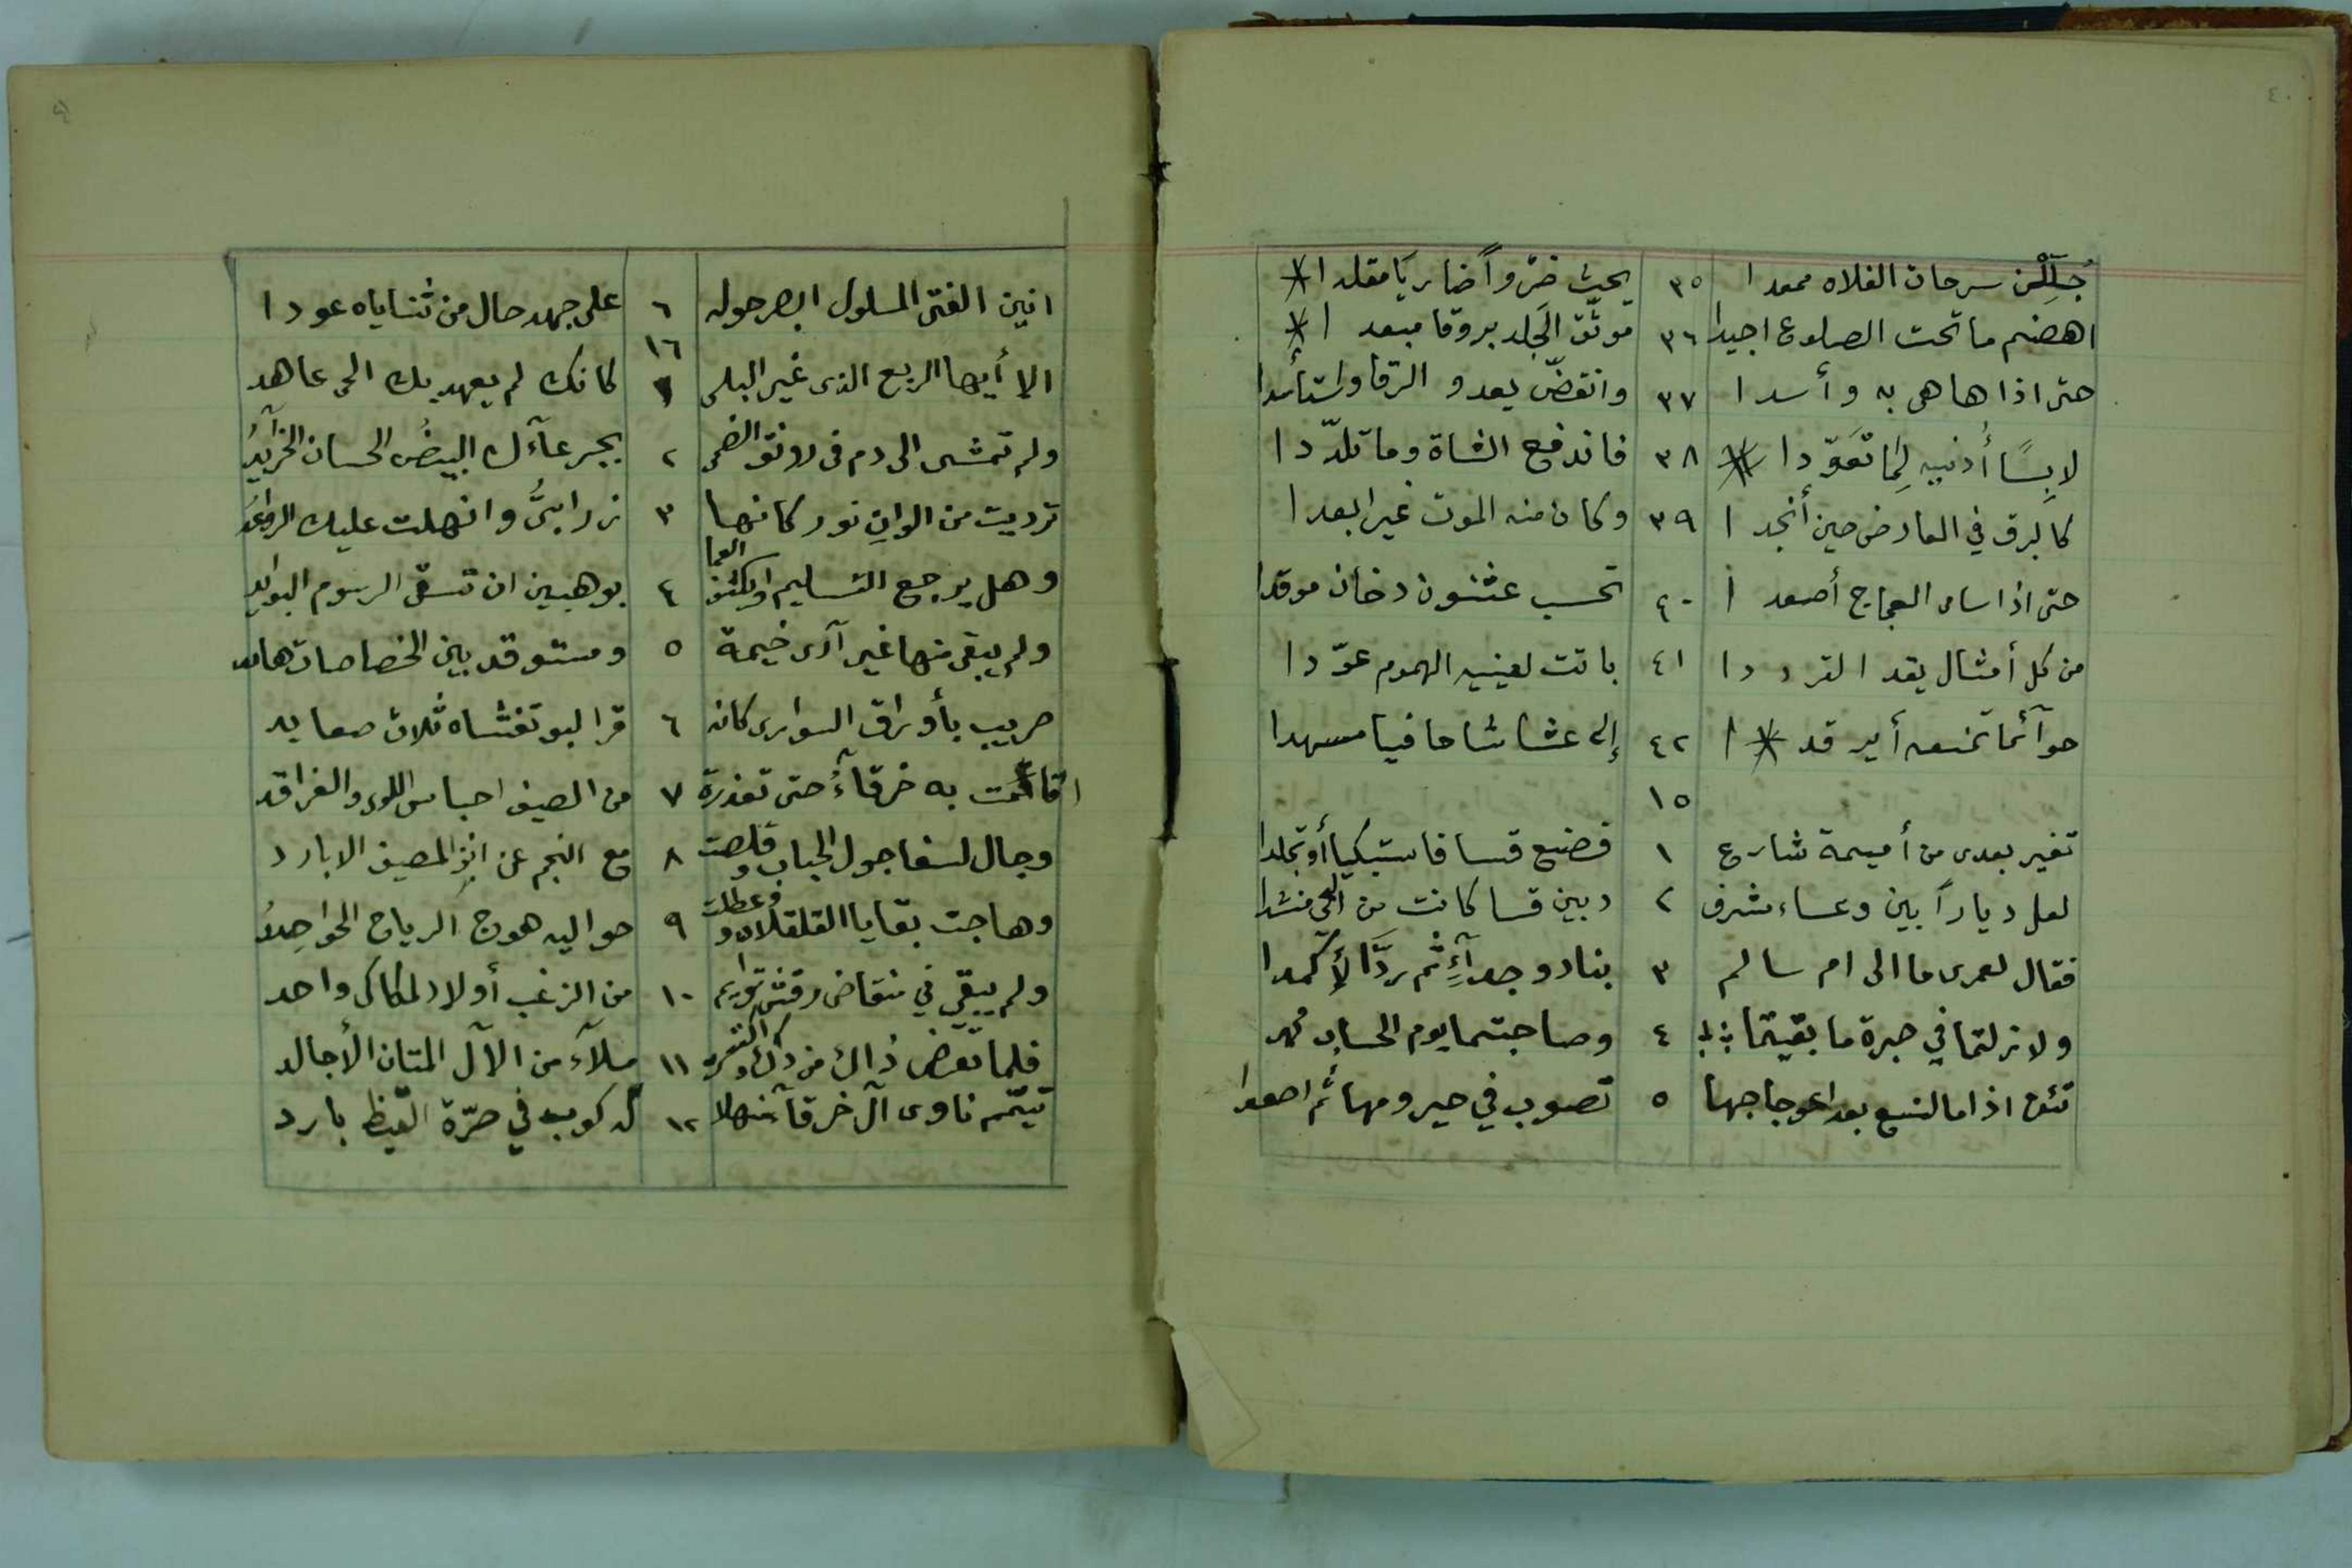 ٤٠
جُلِّلْن سرحان الفلاه ممعدا ٣٥ يحثّ ضرواً ضاريًا مقلدا
اهضم ما تحت الضلوع اجيدا ٣٦ موثّق الجَلد بروقا مبعدا
حتى اذا هاهى به وأسدا ٣٧ وانقضّ يعدو الرقا واستأسدا
لابِسًا أُذنيه لِمَا تعَوّدا ٣٨ فاندفع الشاة وما تلدّدا
كالبرق في العارض حين أنجدا ٣٩ وكان منه الموت غير ابعدا
حتى اذا سامى العجاج أصعدا ٤٠ تحسب عثنون دخان موقدا
من كل أمثال يقد القرددا ٤١ باتت لعينيه الهموم عوّدا
حوآئما تمنعه أن يرقدا ٤٢ إلا غشاشا حافيا مسهدا
١٥
تغير بعدى من أميمة شارع ١ فضنع قسا فاستبكيا أو تجلدا
لعل دياراً بين وعساء مشرف ٢ وبين قسا كانت من الحى منشدا
فقال لعمرى ما الى ام سالم ٣ بناد وجدآءٍ ثم ردَّا لأكمدا
ولا زلتما في حبرة ما بقيتما ٤ وصاحبتما يوم الحساب محمد
تئن اذا ما النسع بعد اعوجاجها ٥ تصوب في حيزومها ثم اصعدا
انين الفتى المسلول ابصر حوله ٦ على جهد حال من ثناياه عودا
١٦
الا أيها الربع الذى غير البلى ١ كانك لم يعهد بك الحى عاهد
ولم تمشى الى دم فى رونق الضحى ٢ بجرعآءك البيضُ الحسان الخرآيدُ
ترديت من الوانِ نور كانها ٣ زرابىُّ وانهلت عليك الرواعدُ
وهل يرجع التسليم او يكشف العما ٤ بوهبين ان تسقى الرسوم البوايد
ولم يبق منها غير آرى خيمة ٥ ومستوقد بين الخصاصات هامد
ضريب بأوراق السوارى كانه ٦ قرا البو تغشاه ثلاث صعايد
اقامت به خرقآءُ حتى تعذرت ٧ من الصيف احباس اللوى والغراقد
وجال السفا جول الحباب وقلصت ٨ مع النجم عن انفِ المصيف الابارد
وهاجت بقايا القلقلان وعطلت ٩ حواليه هوج الرياح الحواصِدُ
ولم يبق في منقاض رقش توايم ١٠ من الزغب أولاد المكاكى واحد
فلما تقضى ذاك من ذاك واكتست ١١ ملآءَ من الآل المتان الأجالد
تيمم ناوى آل خرقآء منهلا ١٢ له كوب في صرّة القيظ بارد